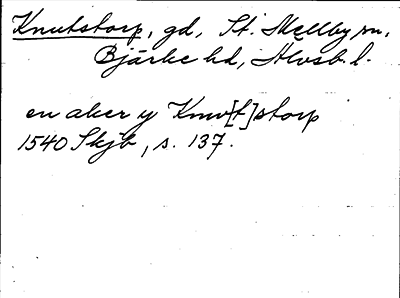 Knutstorp, gd, St. Mellby sn,
Bjärke hd, Älvsb. l.
en aker y Knw[t]storp
1540 Skjb, s. 137.